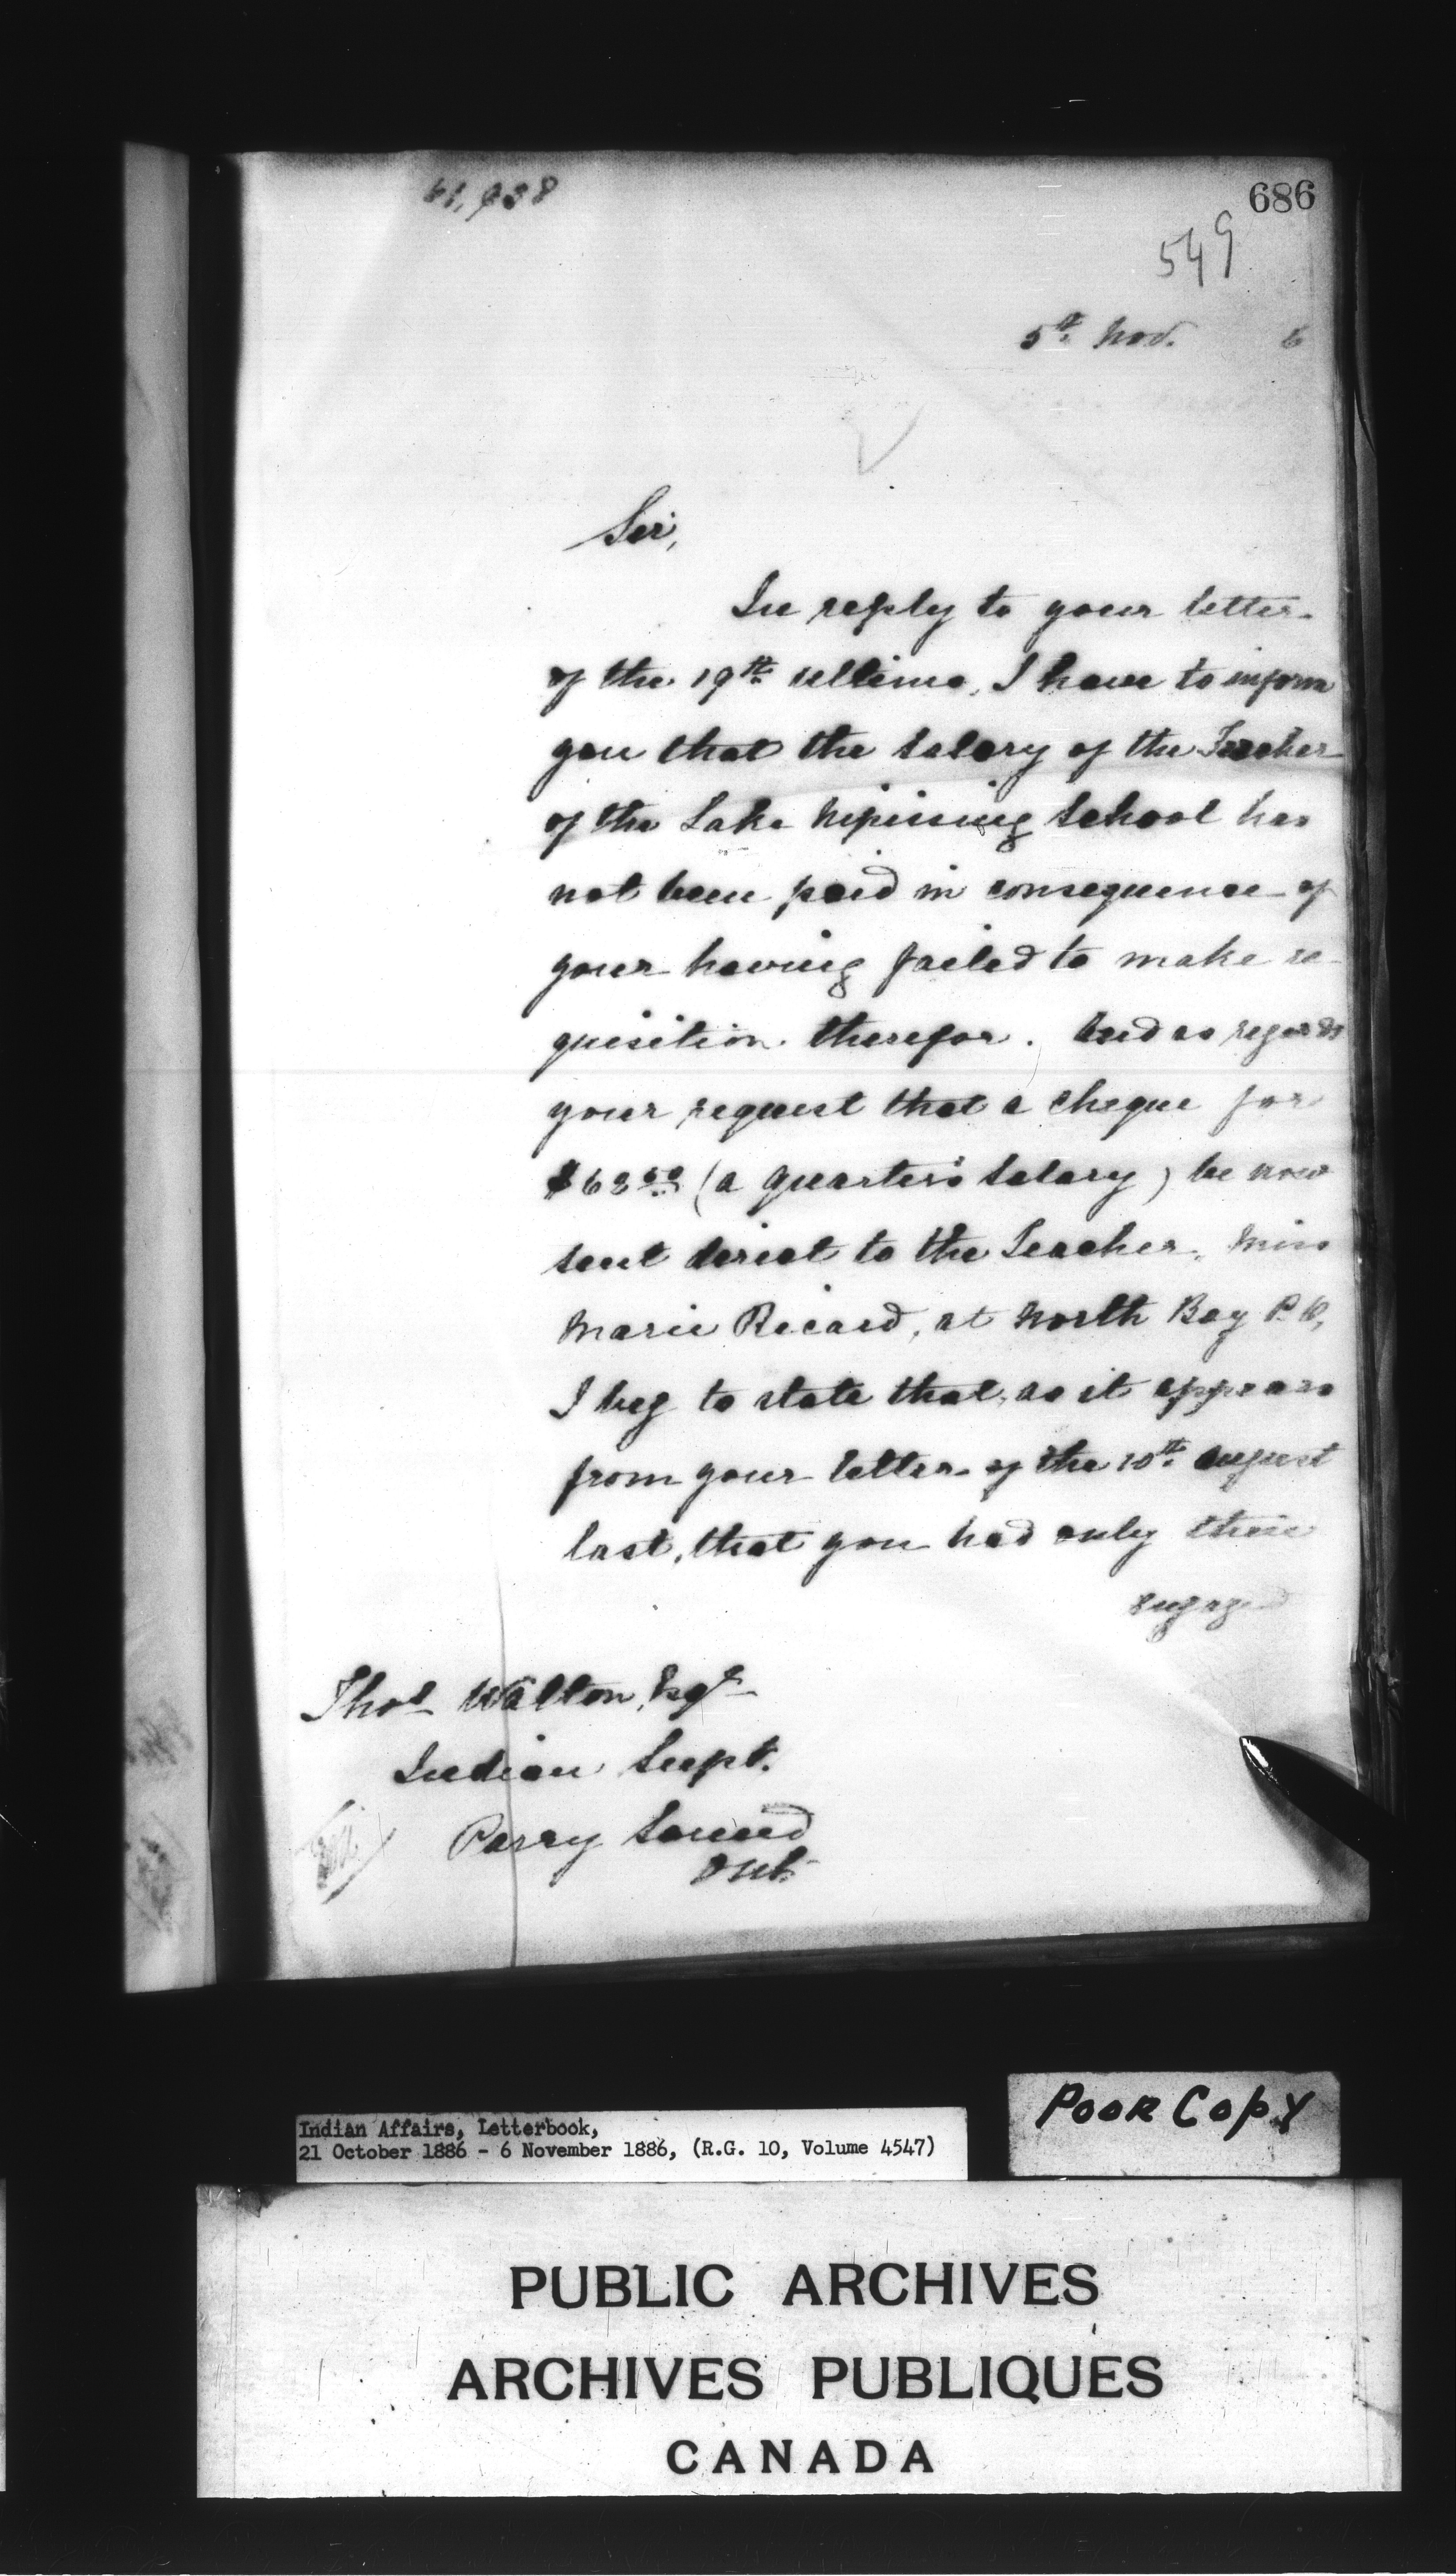 61,938
686
549
5th. Nov. 6
Sir,
In reply to your letter
of the 19th ultimo, I have to inform
you that the salary of the Teacher
of the Lake Nipissing School has
not been paid in consequence of
your having failed to make re-
quisition therefor. And as regards
your request that a cheque for
$62 50 (a quarter's salary) be now
sent direct to the Teacher, Miss
Marie Ricard, at North Bay P.O,
I beg to state that, as it appears
from your letter of the 10th. August
last, that you had only then
engaged
Thos Walton, Esqr
Indian Supt.
Parry Sound
Ont.
Indian Affairs, Letterbook,
21 October 1886 - 6 November 1886, (R.G. 10, Volume 4547)
POOR COPY
PUBLIC ARCHIVES
ARCHIVES PUBLIQUES
CANADA